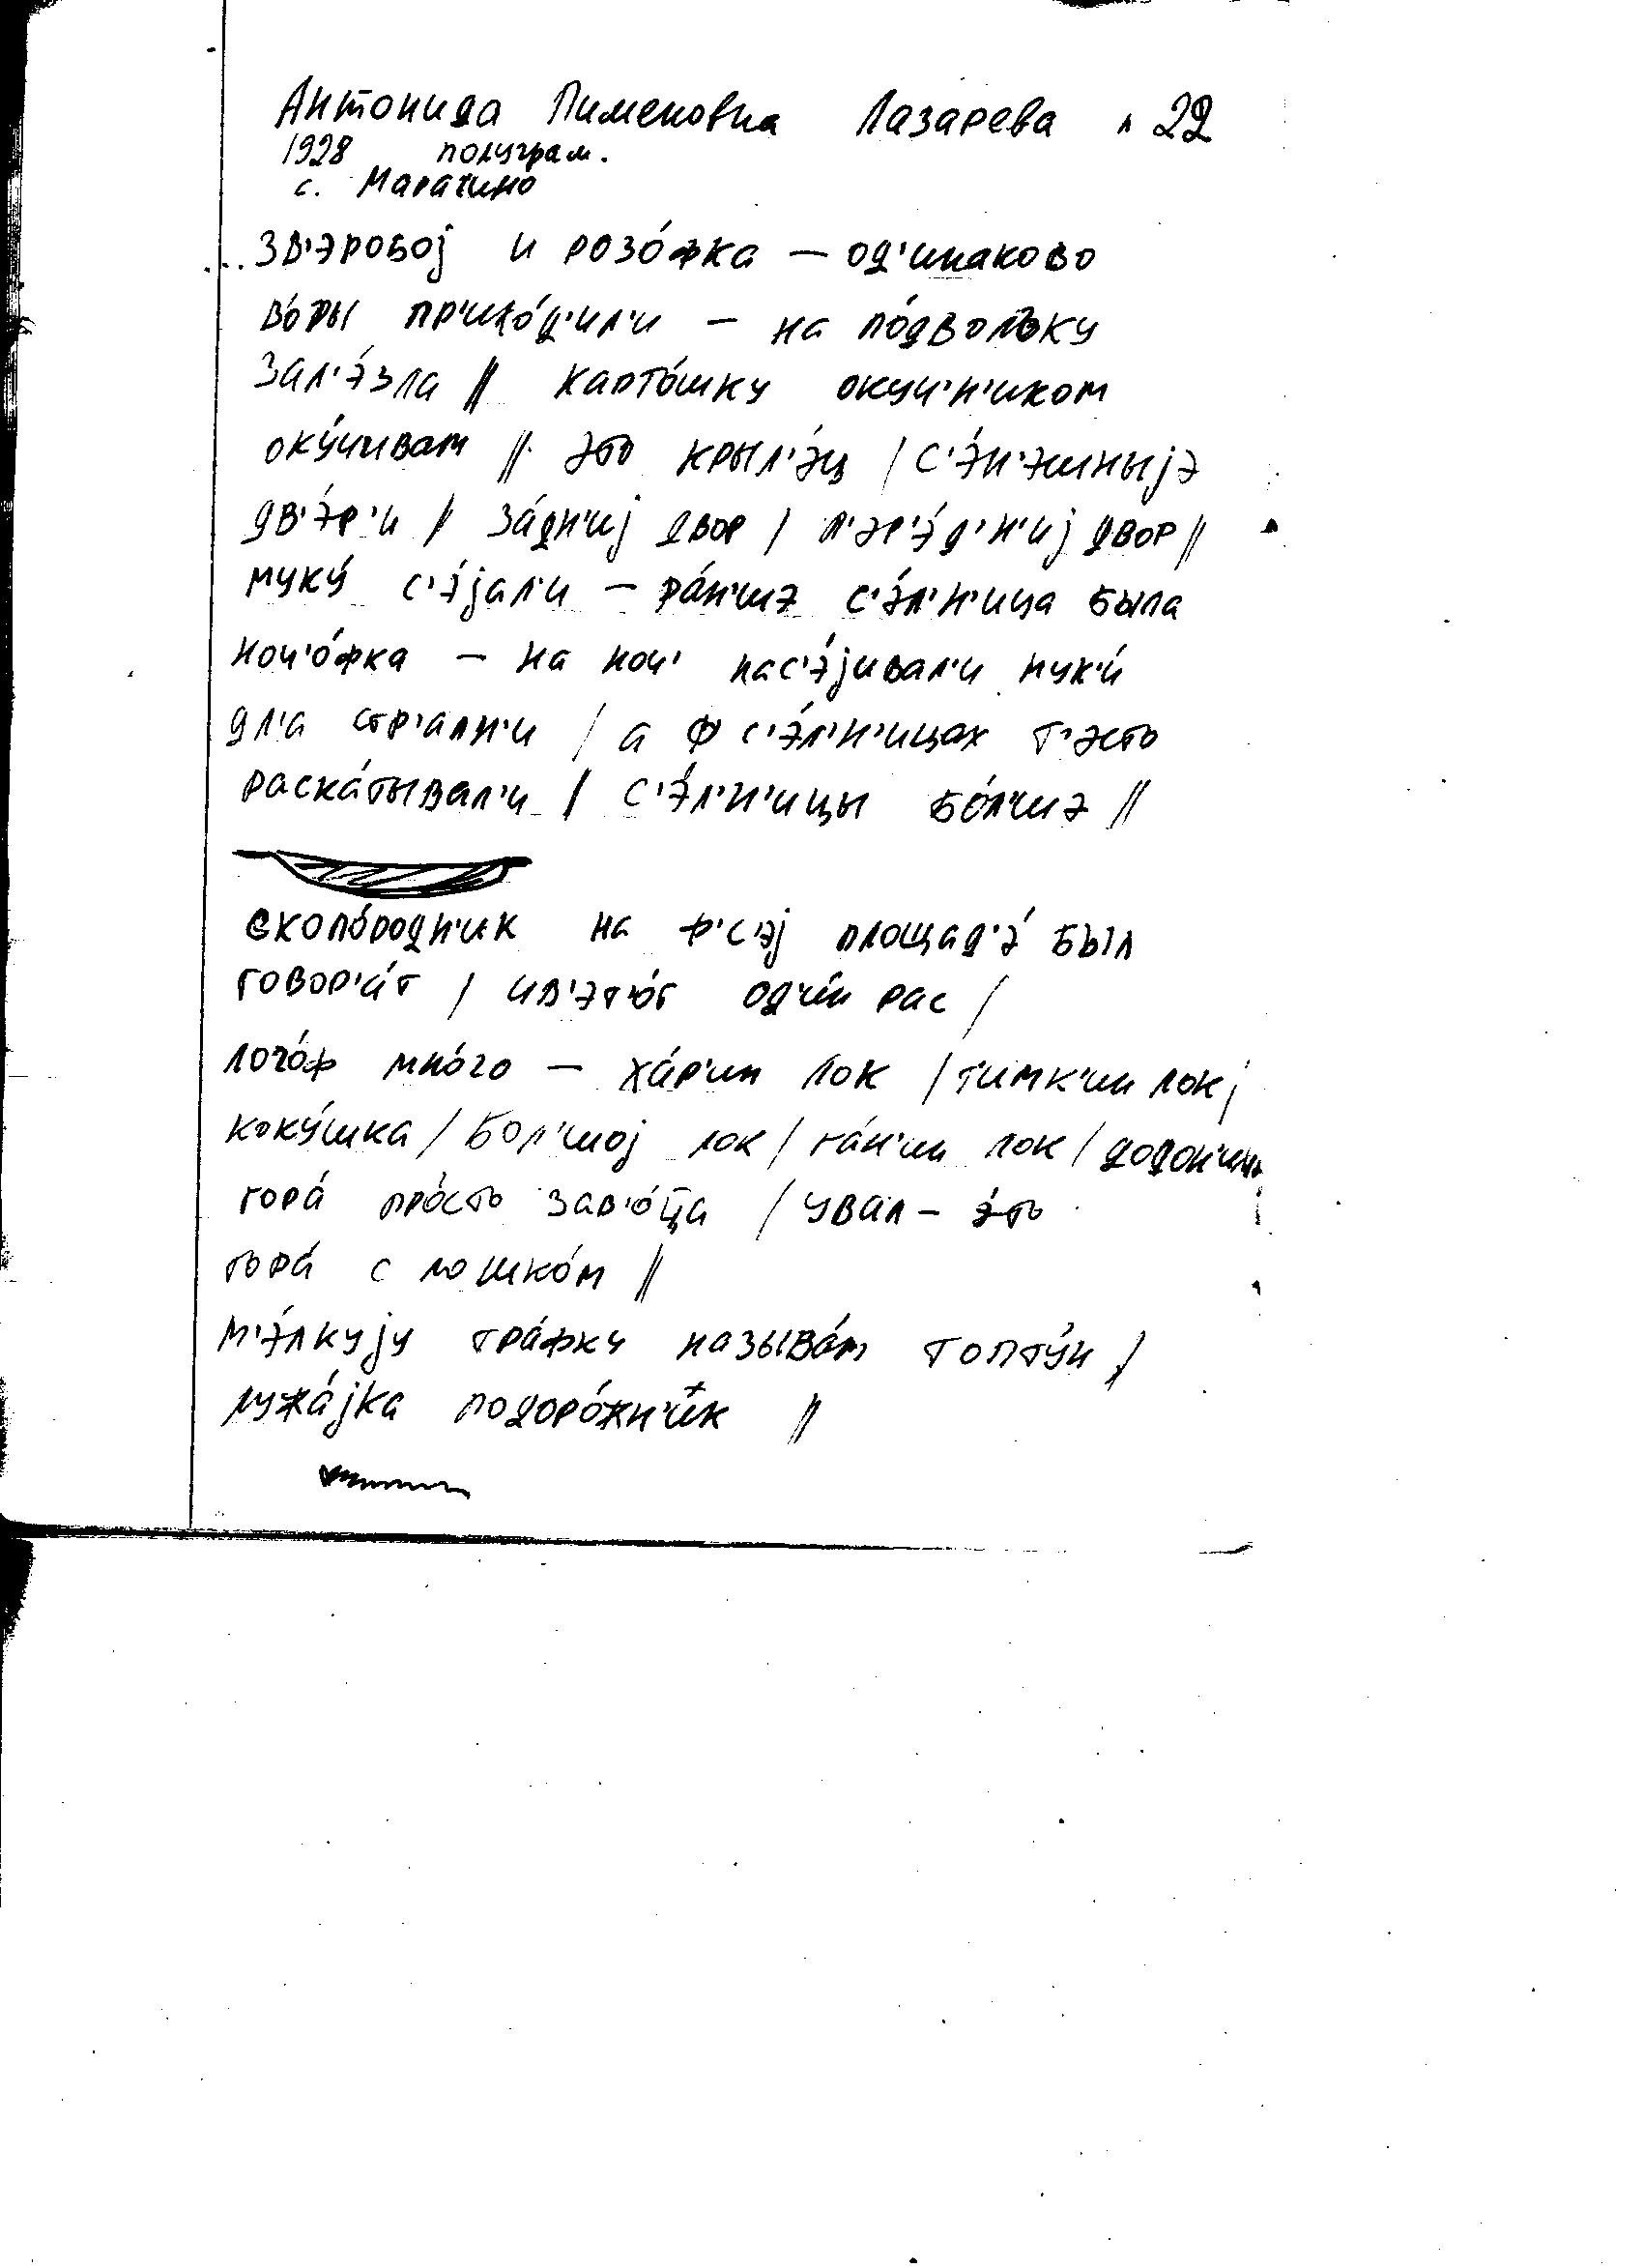 Антонида Пименовна Лазарева л 22
1928 полуграм.
с. Марачино
...зв'эробој и розо́фка — од'инаково
во́ры пр'ихо́д'ил'и — на по́двол
зал'э́зла // карто́шку окуч'н'иком
оку́чиват // это крыл'э́ц / с'э́н'эшныјэ
дв'э́р'и / за́дн'иј двор / п'эр'э́д'н'иј двор //
муку́ с'э́јал'и — ра́н'шэ с'э́л'н'ица была
ноч'о́фка — на ноч' нас'э́јивал'и мук'и́
дл'а стр'апн'и / а ф с'э́л'н'ицах т'эсто
раска́тывал'и / с'э́л'н'ицы бо́л'шэ //
сковоро́дн'ик на ф'с'эј площад'э́ был
говор'а́т / цв'эт'о́т од'и́н рас /
лого́ф мно́го — ха́р'ин лок / тимк'ин лок /
коку́шка / бол'шој лок / га́н'ин лок / додон'ин
гора́ про́сто зав'о́ца / увал — э́то
гора́ с лошко́м //
м'э́лкују тра́фку называ́т топту́н /
лужа́јка подоро́жн'ик //